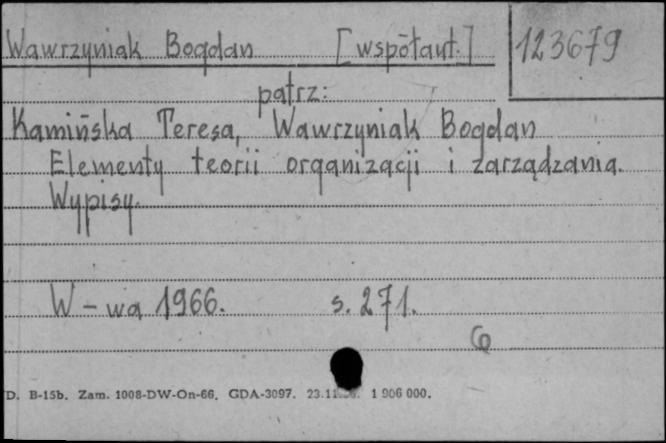 Wawrzyniak Bogdan [współaut.] 123679
patrz:
Kamińska Teresa, Wawrzyniak Bogdan
Elementy teorii organizacji i zarządzania.
Wypisy.
W-wa 1966. s. 271.
D. B-15b. Zam. 1008-DW-On-66. GDA-3097. 1 906 000.